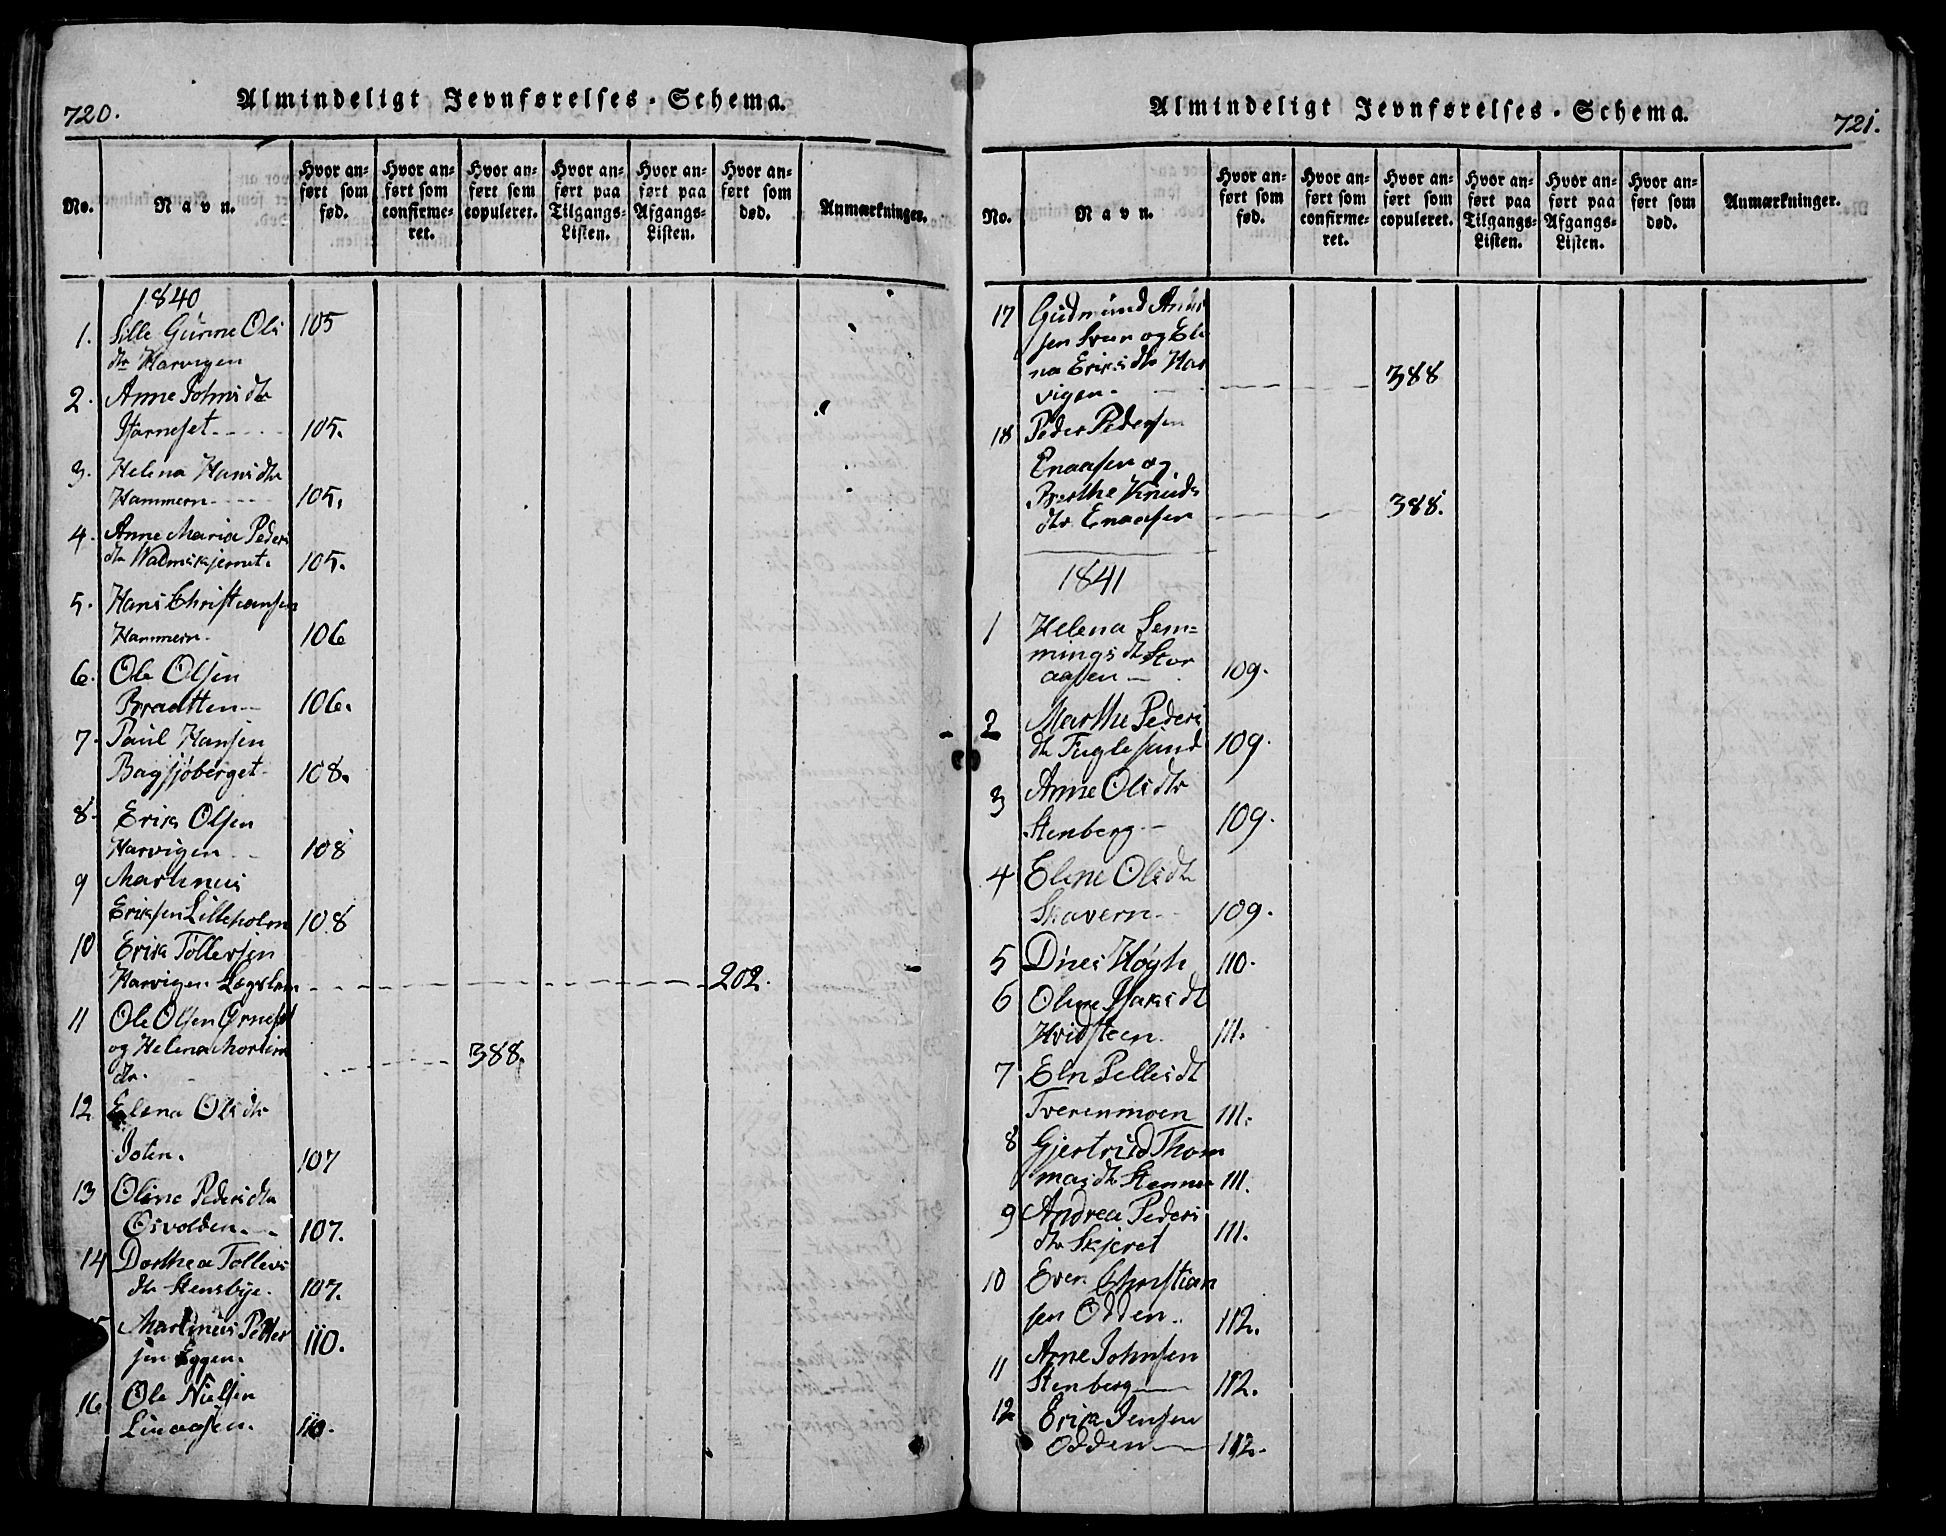 720.
Almindeligt Jevnførelses-Schema.
No.
Navn.
Hvor an-
ført som
fød.
Hvor an-
ført som
confirme-
ret.
Hvor an-
ført som
copuleret.
Hvor an-
ført paa
Tilgangs-
Listen.
Hvor an-
ført paa
Afgangs-
Listen.
Hvor an-
ført som
død.
Anmærkninger.
1840
1. Sille Gurine Ols 105
dtr Harvigen
2. Anne Johnsdtr
Størneset 105.
3. Helena Hansdtr
Hammern 105.
4. Anne Maria Peders
dtr 105.
5. Hans Christiansen
Hammern 106
6. Ole Olsen
Braatten 106.
7. Paul Hansen
Bagsjøberget 108.
8. Erik Olsen
Harvigen 108
9 Martinus
Eriksen Lilleholm 108
10 Erik Tollefsen
Harvigen Lægslem 202.
11 Ole Olsen Ørneset
og Helena Mortens
dtr. 388.
12 Elena Olsdtr
Joten. 107
13 Oline Pedersdtr
Osvolden 107.
14 Dorthea Tollevs
dtr Stensbye. 107.
Martinus Petter
sen Eggen. 110.
16 Ole Nielsen
Linaasen. 110.
Almindeligt Jevnførelses-Schema.
721.
No.
Navn.
Hvor an-
ført som
fød.
Hvor an-
ført som
confirme-
ret.
Hvor an-
ført som
copuleret.
Hvor an-
ført paa
Tilgangs-
Listen.
Hvor an-
ført paa
Afgangs-
Listen.
Hvor an-
ført som
død.
Anmærkninger.
17 Gudmund Ander
sen Sven og Ele
na Eriksdtr Har
vigen. 388
18 Peder Pedersen
Enaasen og
Berthe Knuds
dtr Enaasen 388.
1841
1 Helena Sem=
mingsdtr Stor
aasen 109.
2 Marthe Peders
dtr Fuglesund 109.
3 Anne Olsdtr
Stenberg 109.
4 Elene Olsdtr
Skavern 109.
5 Dines Høgh 110.
6 Oline Isaksdtr
Hvidsteen. 111.
7 Eln Pellesdtr
Tverenmoen 111.
8 Gjertrud Thom
masdtr 111.
9 Andrea Peders
dtr Skjeret 111.
10 Even Christian
sen Odden. 112.
11 Arne Johnsen
Stenberg 112.
12 Erik Jensen
Odden 112.